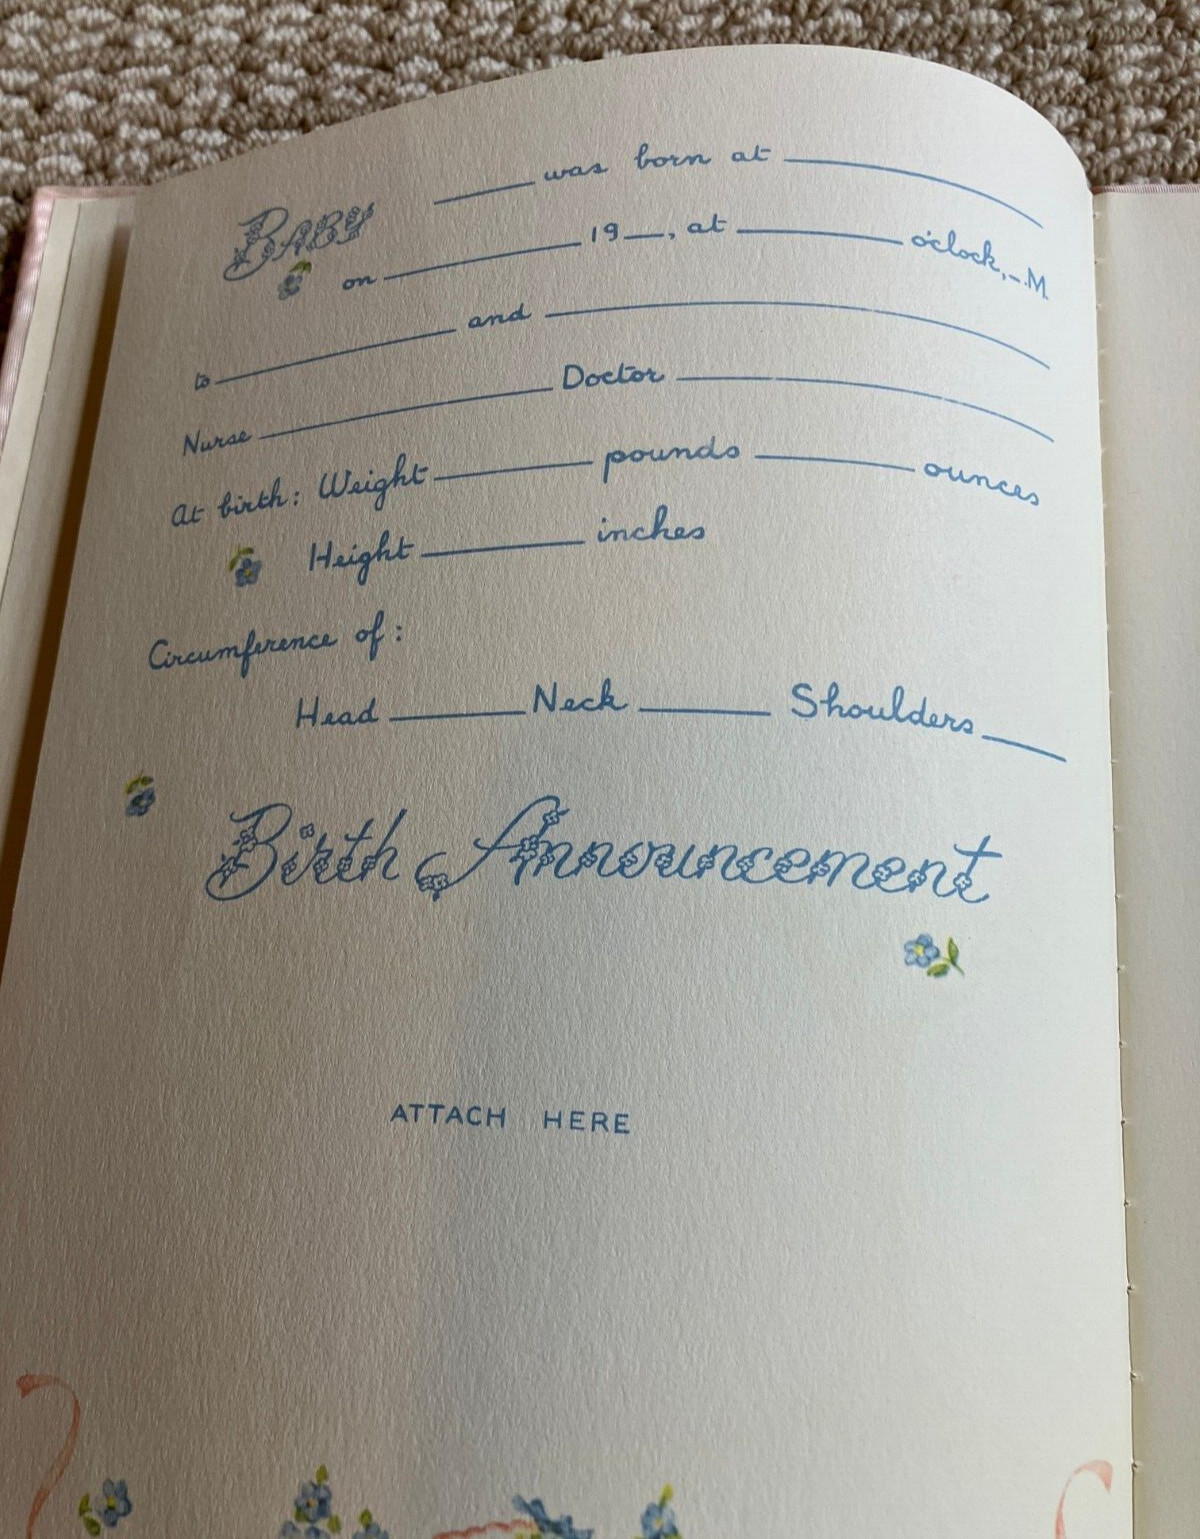 BABY ____ was born at ____
on ____ 19__, at ____ o'clock, _.M.
to ____ and ____
Nurse ____ Doctor ____
At birth: Weight ____ pounds ____ ounces
Height ____ inches
Circumference of:
Head ____ Neck ____ Shoulders ____
Birth Announcement
ATTACH HERE